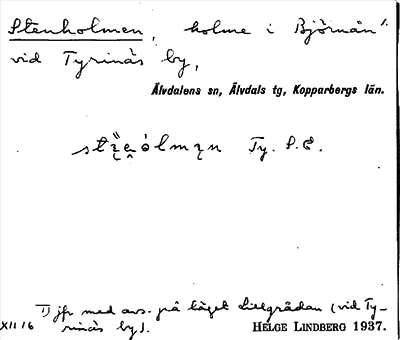 Stenholmen, holme i Björnån¹⁾
vid Tyrinäs by,
Älvdalens sn, Älvdals tg, Kopparbergs län.
Ty. S.E.
¹⁾ jfr med avs. på läget Lillgrådan (vid Ty-
rinäs by).
XII 16
HELGE LINDBERG 1937.